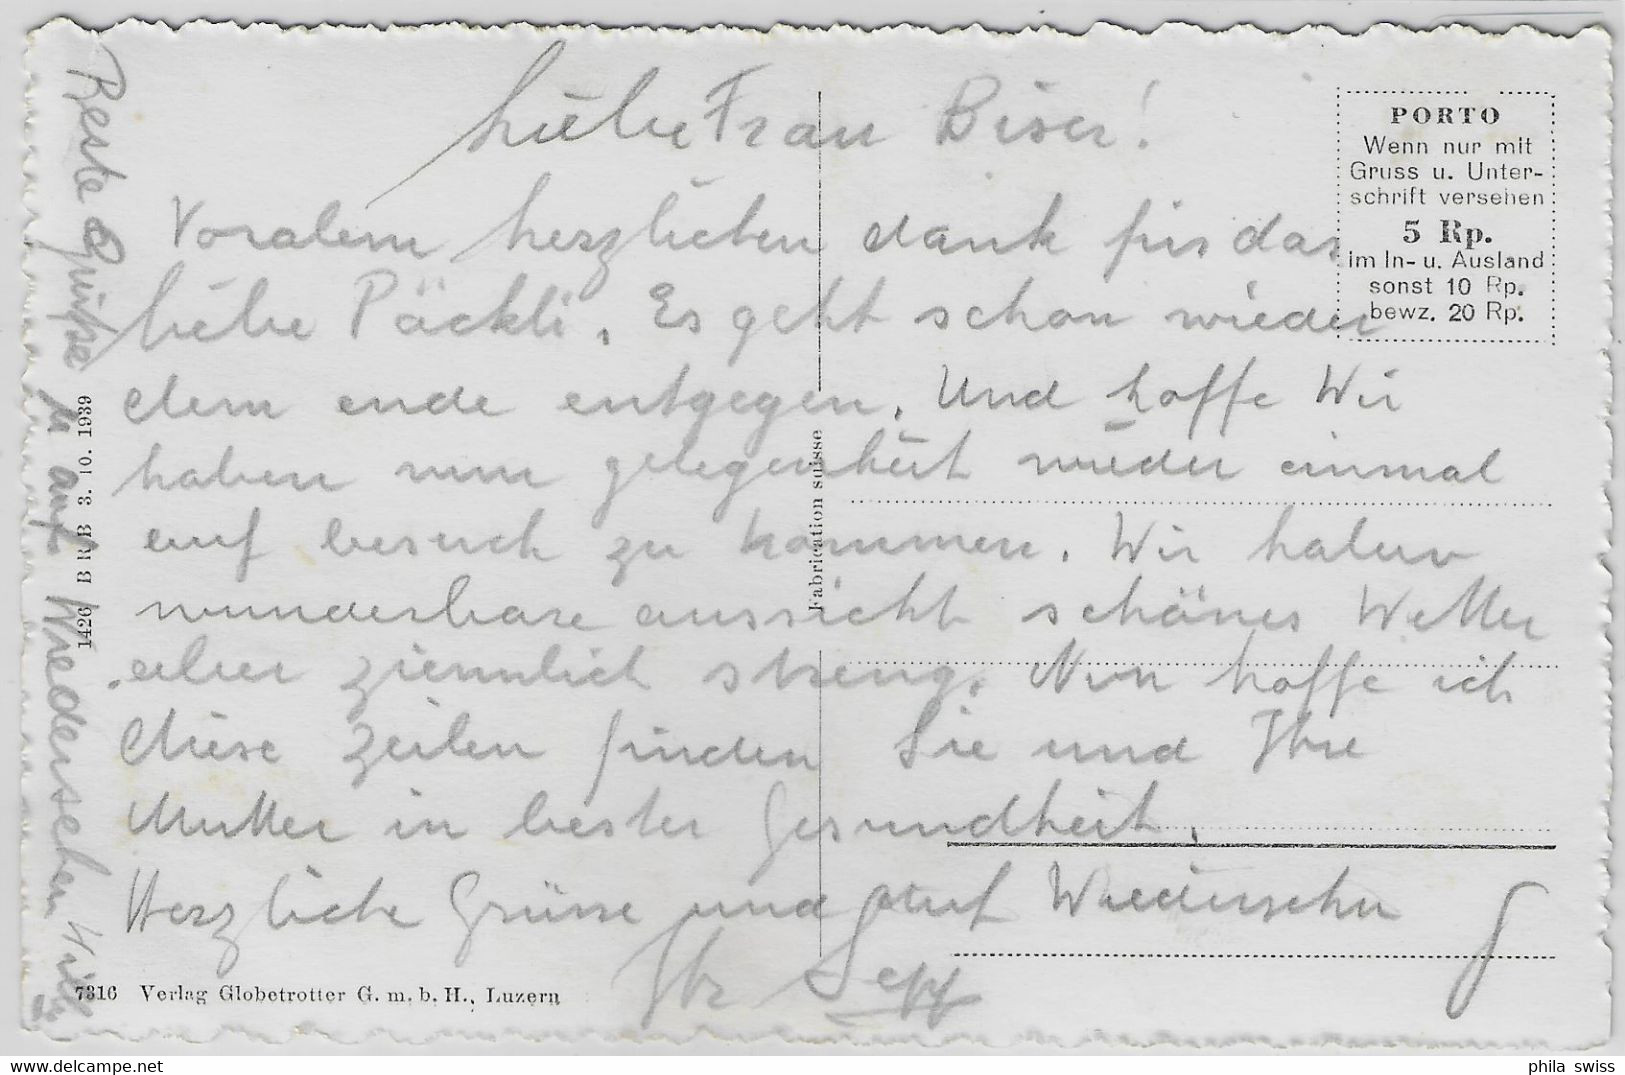 Liebe Frau Biser!
Voralem herzlichen dank für das
liebe Päckli. Es geht schon wieder
dem ende entgegen. Und hoffe Wir
haben nun gelegenheit wieder einmal
auf besuch zu kommen. Wir haben
wunderbare aussicht schönes Wetter
aber ziemlich streng. Nun hoffe ich
diese Zeilen finden Sie und Ihre
Mutter in bester Gesundheit.
Herzliche Grüsse und auf Wiedersehn
Ihr Sepp
Beste Grüße auf Wiedersehen
PORTO
Wenn nur mit
Gruss u. Unter-
schrift versehen
5 Rp.
im In- u. Ausland
sonst 10 Rp.
bewz. 20 Rp.
Fabrication suisse
1426 B R B 3. 10. 1939
7316 Verlag Globetrotter G. m. b. H., Luzern
www.delcampe.net
phila_swiss